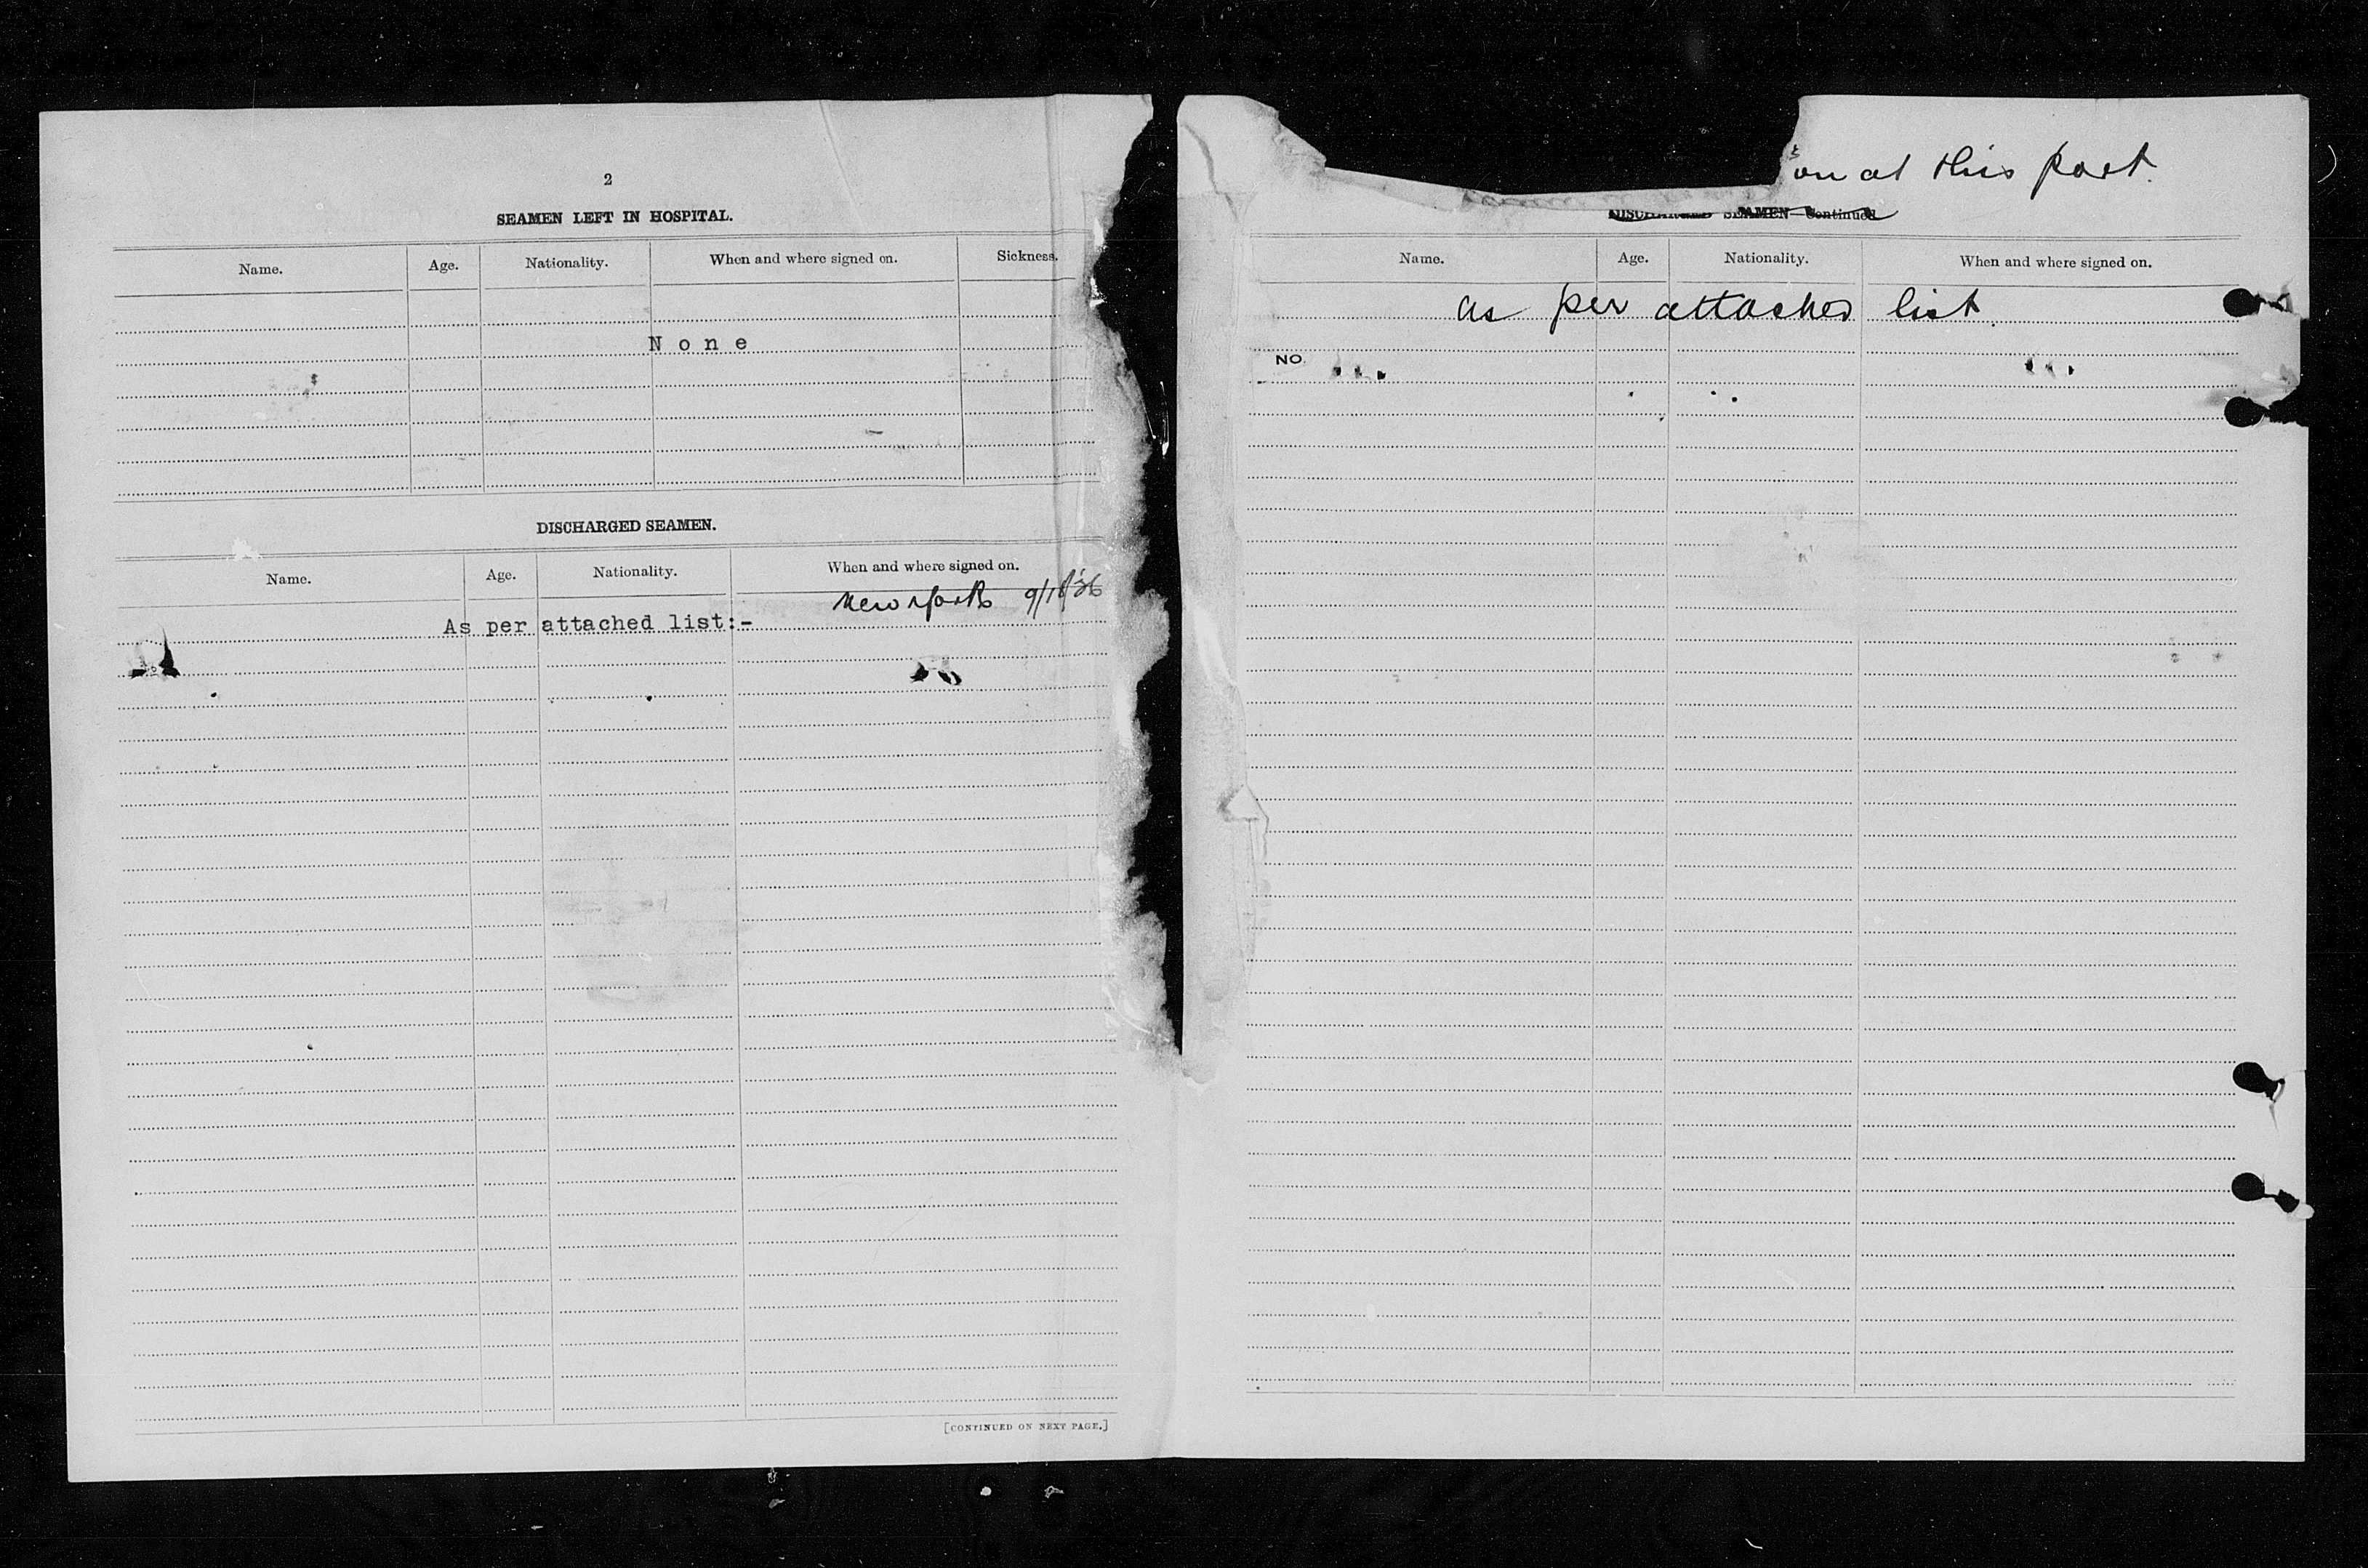 2
SEAMEN LEFT IN HOSPITAL.
Name. Age. Nationality. When and where signed on. Sickness.
None
DISCHARGED SEAMEN.
Name. Age. Nationality. When and where signed on.
New York 9/18/36
As per attached list:-
[CONTINUED ON NEXT PAGE.]
on at this port.
DISCHARGED SEAMEN—Continued
Name. Age. Nationality. When and where signed on.
as per attached list.
NO.